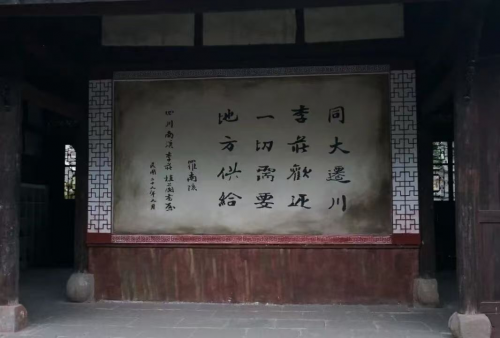 同大遷川
李莊歡迎
一切需要
地方供給
羅南陔
四川南溪李莊植蘭書屋
民國二十八年